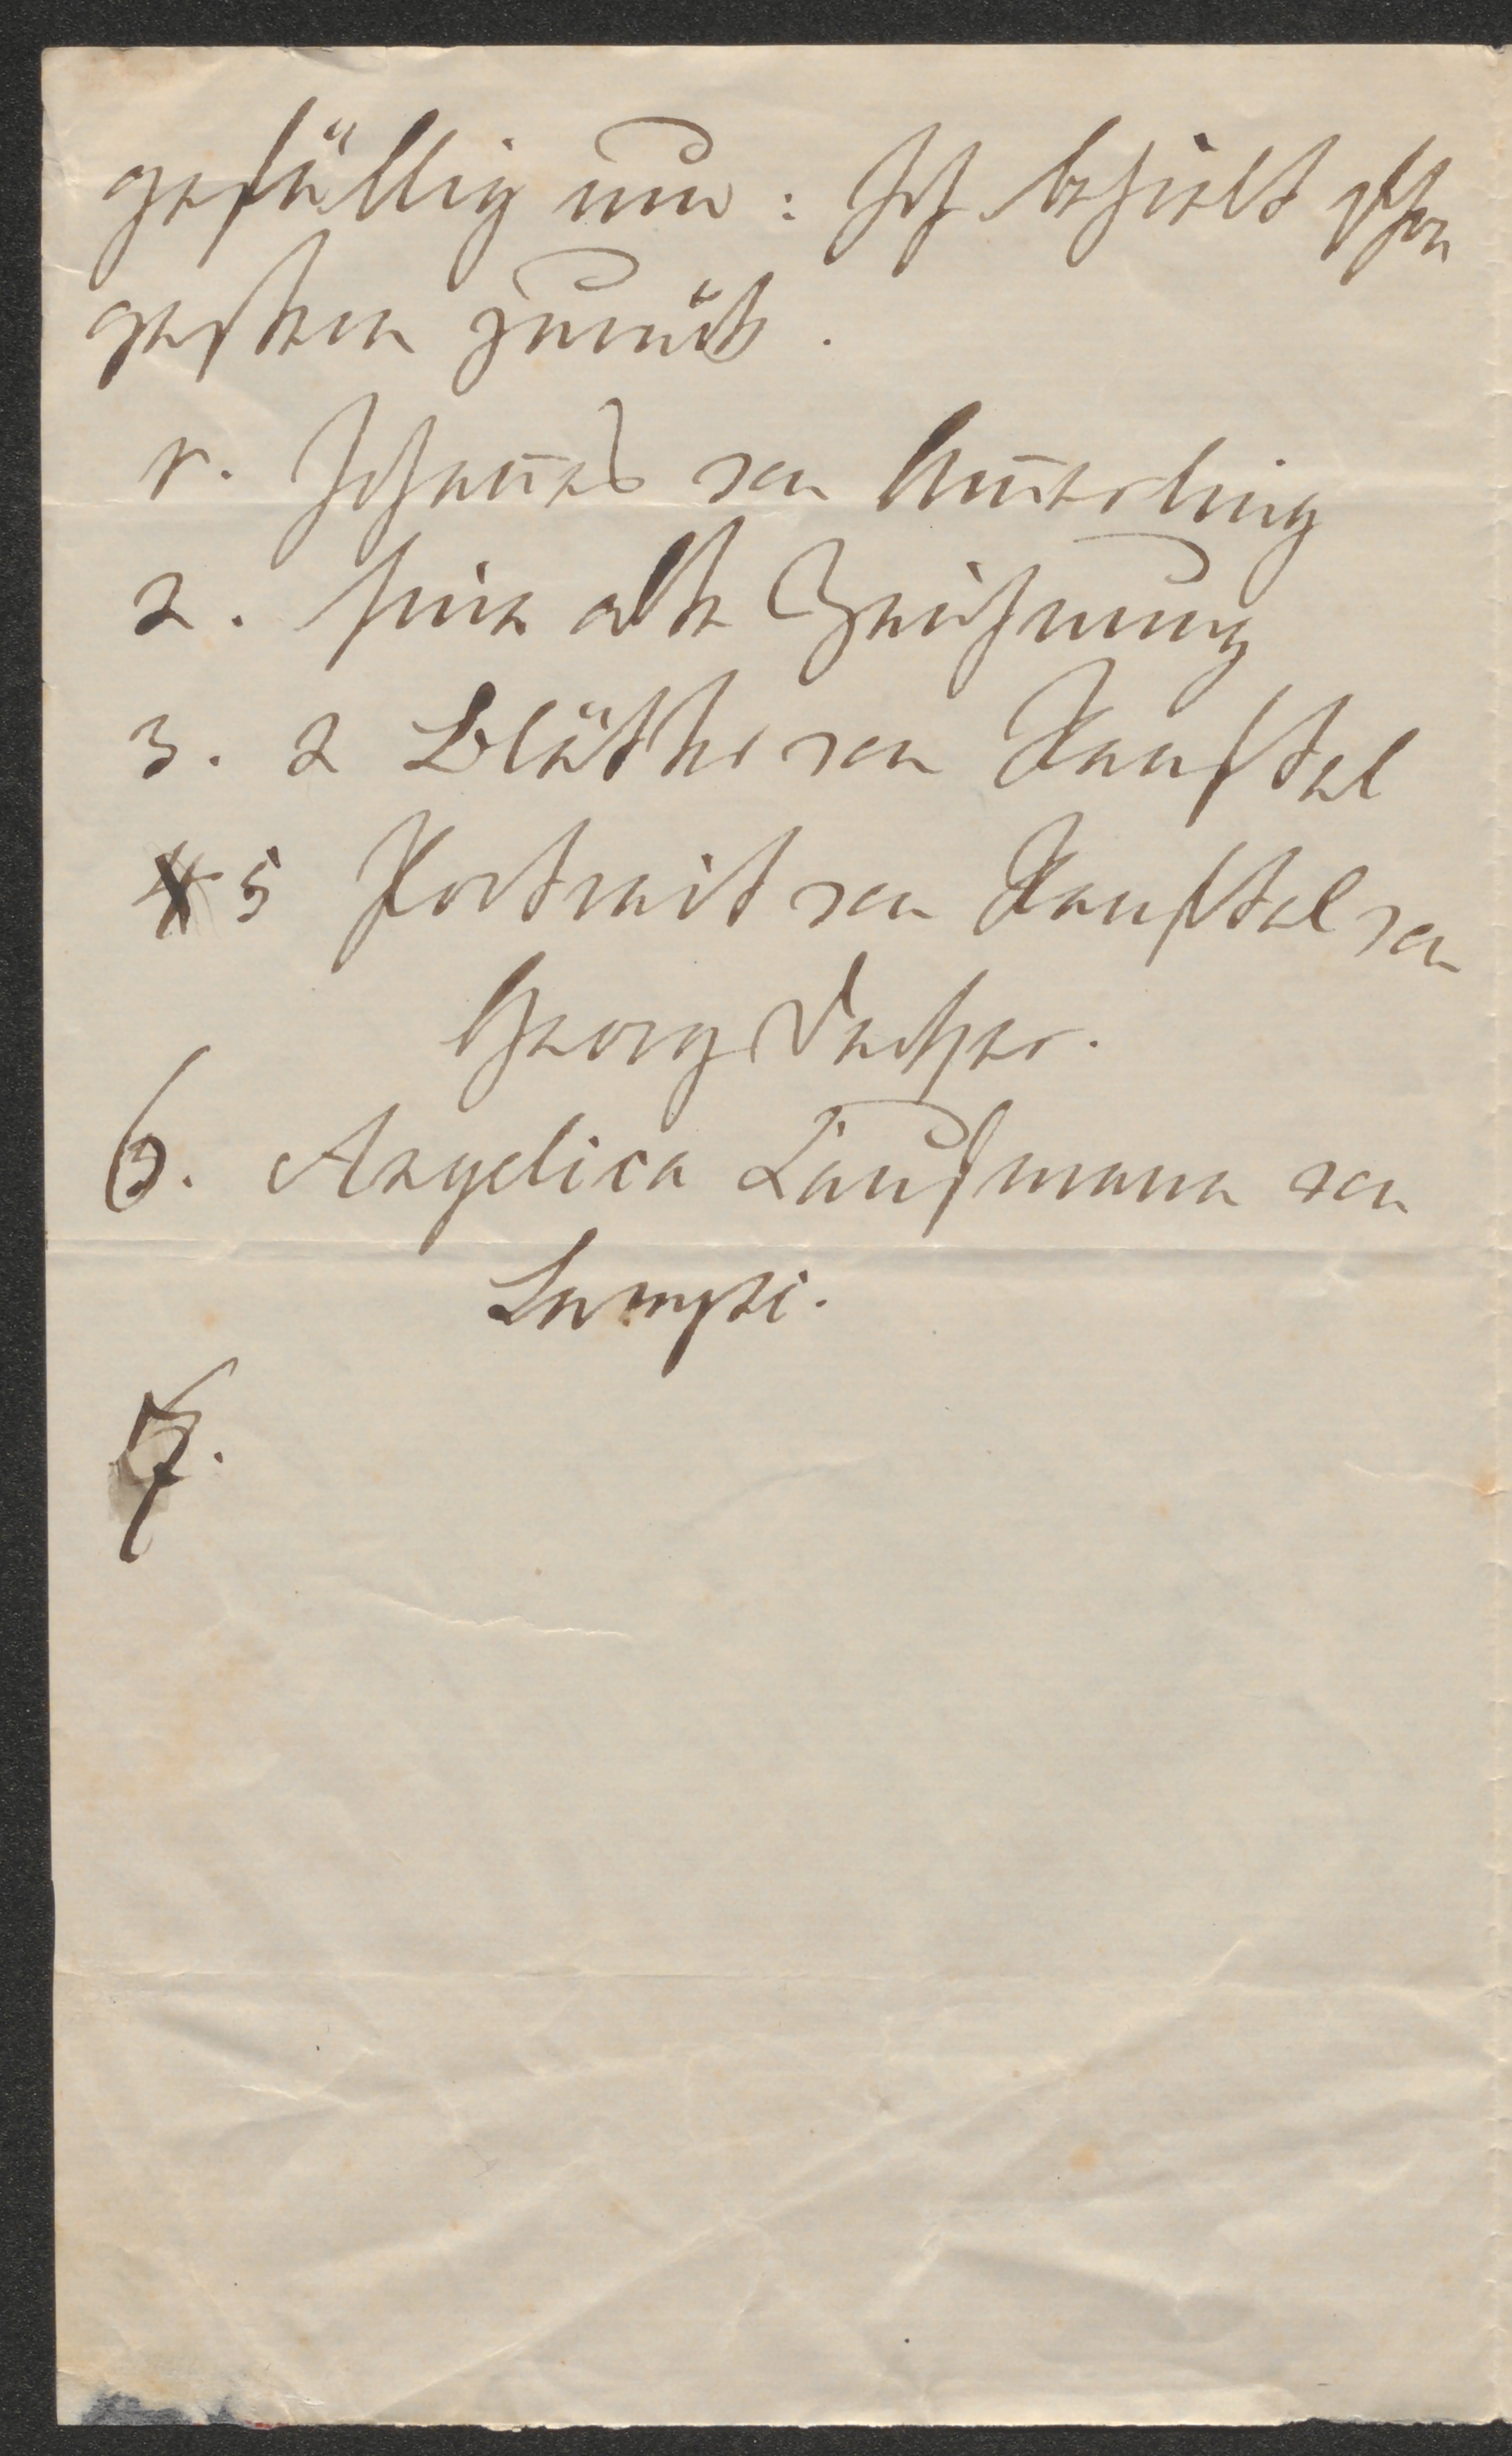 gefällig um: Ich behielt schon
gestern zurück.
1. Johan̄es von Am̄erling
2. Eine alte Zeichnung
3. 2 Blätter von Danhsel
5 Portrait von Danhsel von
Georg Decker.
6. Angelica Kaufmann von
Lampi.
7.